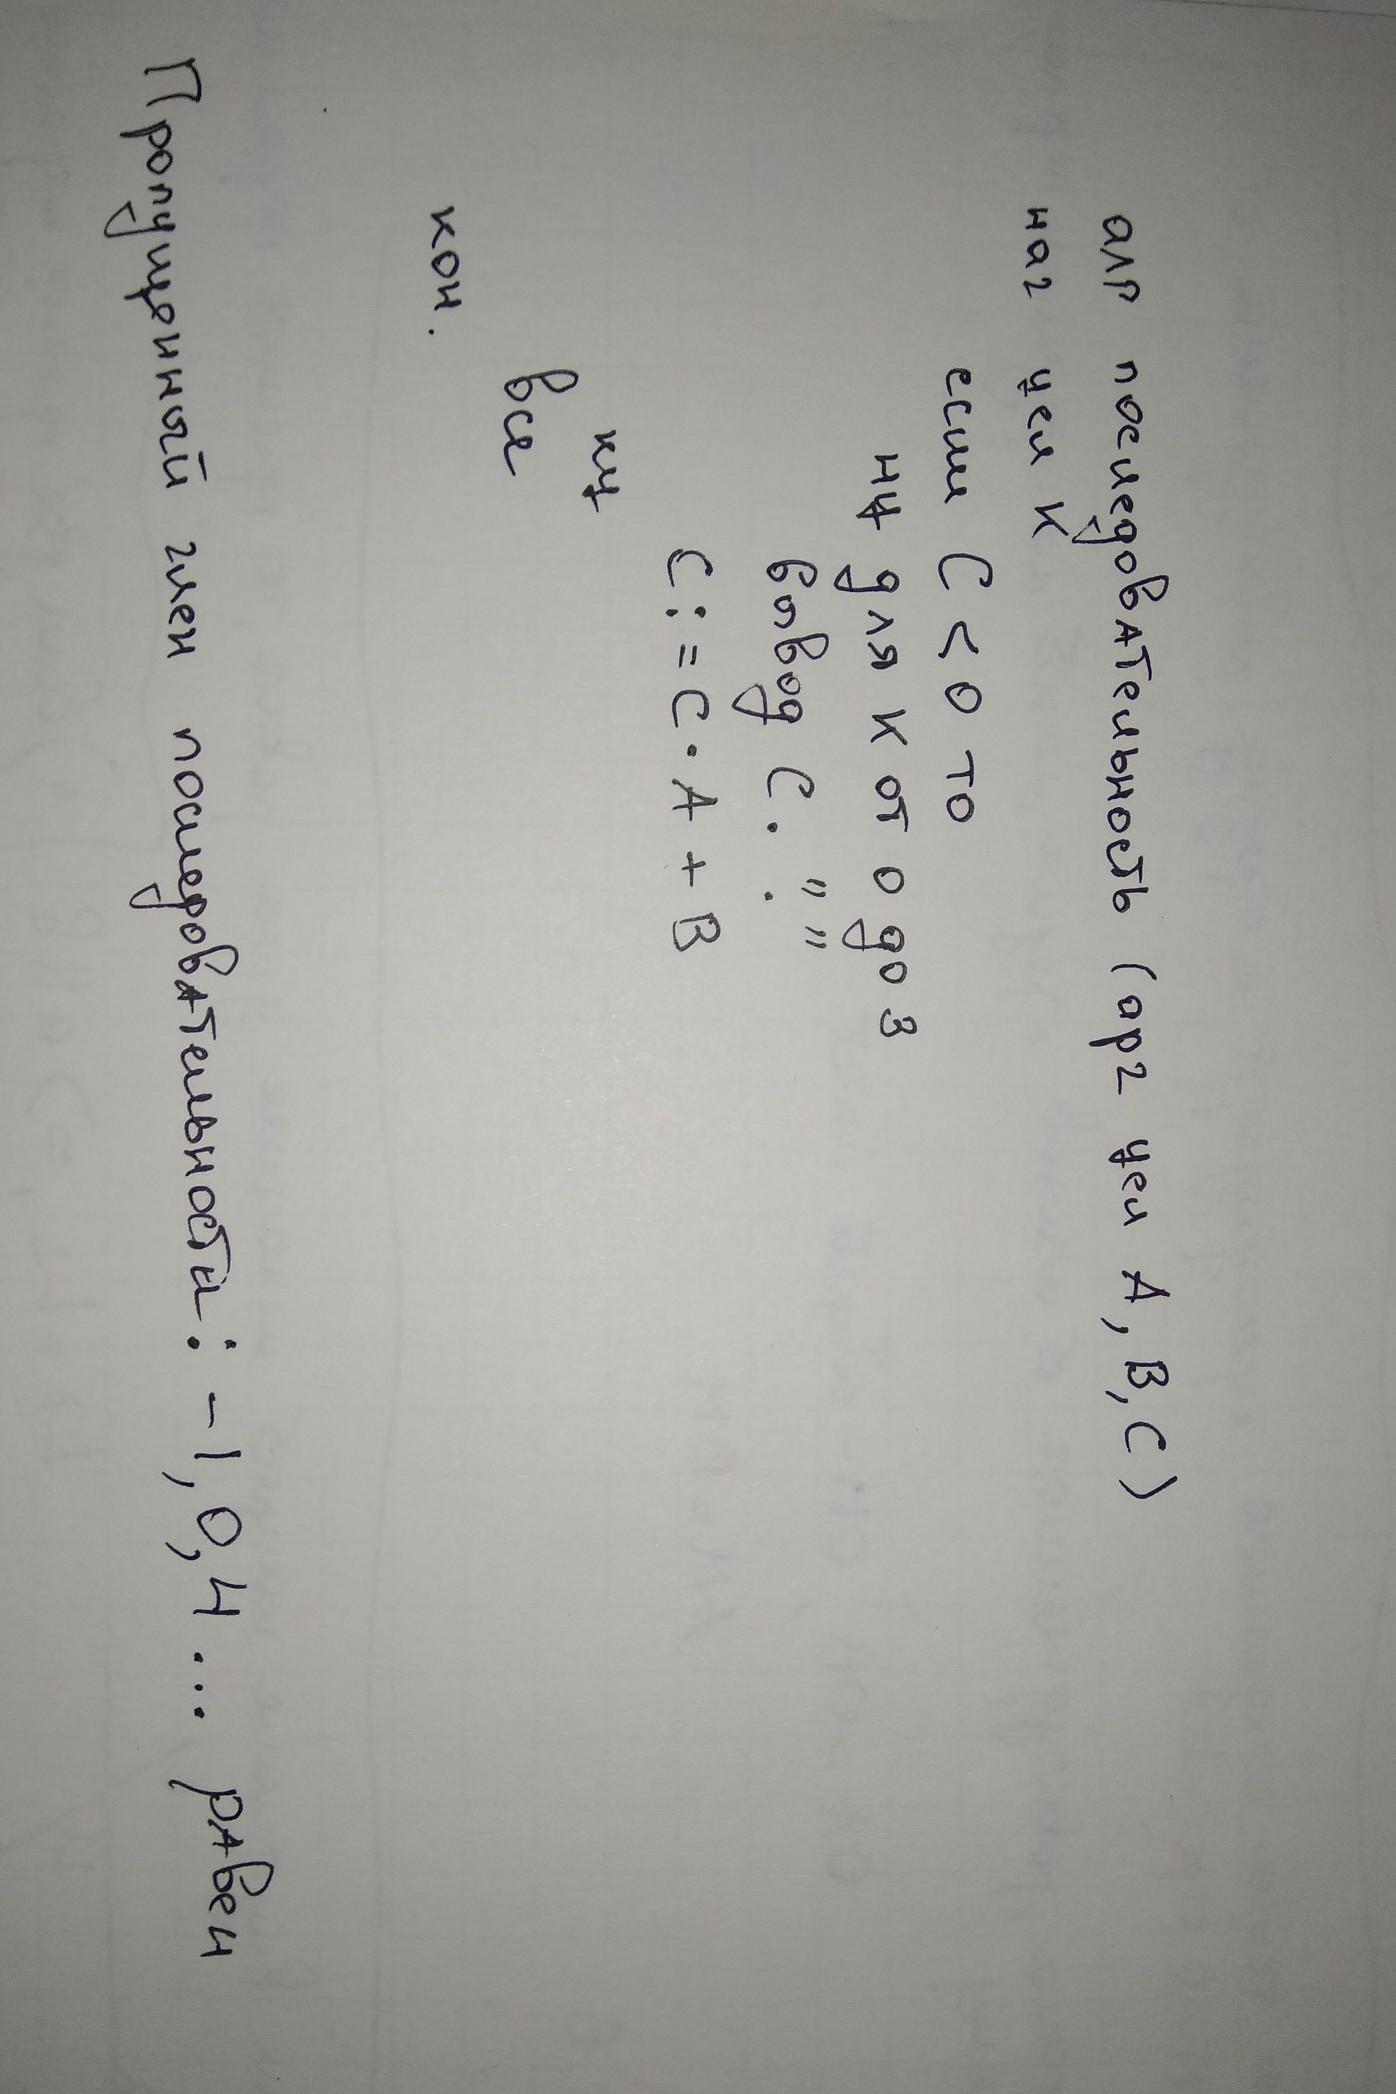 алг последовательность (арг цел А, В, С)
нач цел К
если С < 0 то
нц для К от 0 до 3
вывод С. . " "
С := С · А + В
кц
все
кон.
Пропущенный член последовательности: -1, 0, 4 ... равен